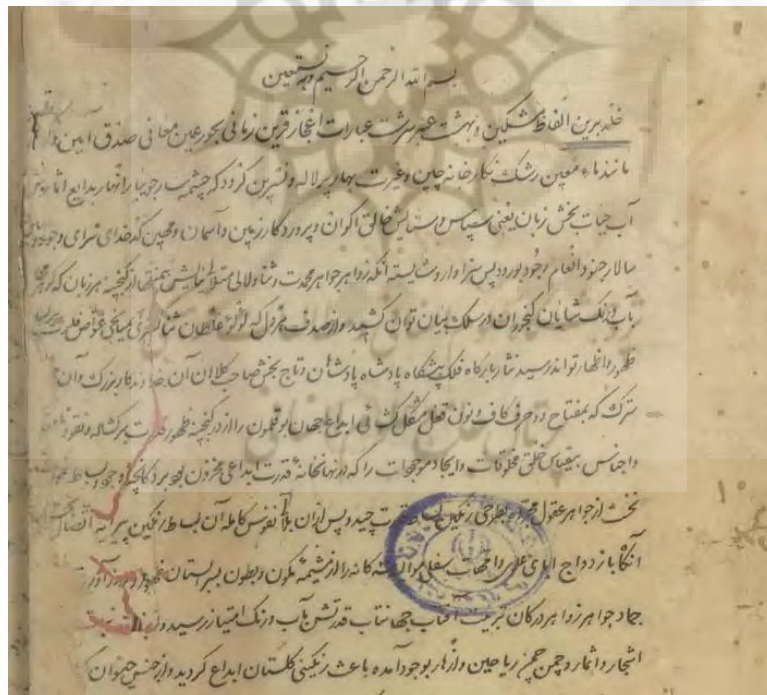 بسم الله الرحمن الرحیم و به نستعین
خلد برین الفاظ مشکین و بهشت عنبر سرشت عبارات اعجاز قرین زمانی بحور عین معانی صدق آیین و
مانند ماء معین رشک نکارخانه چین و غیرت بهار پر لاله و نسرین کردد که چشمه سار جویبار انهار بدایع آثارش
آب حیات بخش زبان یعنی سپاس و ستایش خالق اکوان و پروردکار زمین و آسمان و مهین کدخدای سرای وجود
سالار جنود انعام وجود بورود پس سزاوار و شایسته آنکه زواهر جواهر محمدت و ثنا و لالی متلالی ستایش بیمنتها از کنجینه هر زبان که کوهر
بآب و رنک شایان کنجوران در سلک بیان توان کشید و از صدف هر دل که لؤلؤ غلطان ثنا کستری بمیانجی غواص
ظهور و اظهار تواند رسید نثار بارکاه فلک پیشکاه پادشاه پادشاهان و تاج بخش صاحب کلاهان آن خداوندکار بزرک و آن
سترک که بمفتاح دو حرف کاف و نون قفل مشکل کشائی ابداع جهان بوقلمون را از در کنجینه ظهور قدرت برکشاده و نقود
و اجناس بیقیاس خلق مخلوقات و ایجاد موجودات را که در نهانخانه قدرت ابداعی مخزون بود بر دکانچه وجود
نخست از جواهر عقول مجرده بطرحی رنکین چید و پس از ان نفوس کامله آن بساط رنکین پیرایه
آنکاه بازدواج ابای علوی و امهات سفلی موالید سه کانه را از مشیمه مکون و بطون ببرستان
جماد جواهر زواهر در کان بتربیت آفتاب جهانتاب قدرتش بآب و رنک امتیاز رسید و
اشجار و اثمار و چمن چمن ریاحین و ازهار بوجود آمده باعث رنکینی کلستان ابداع کردید و از جنس حیوان